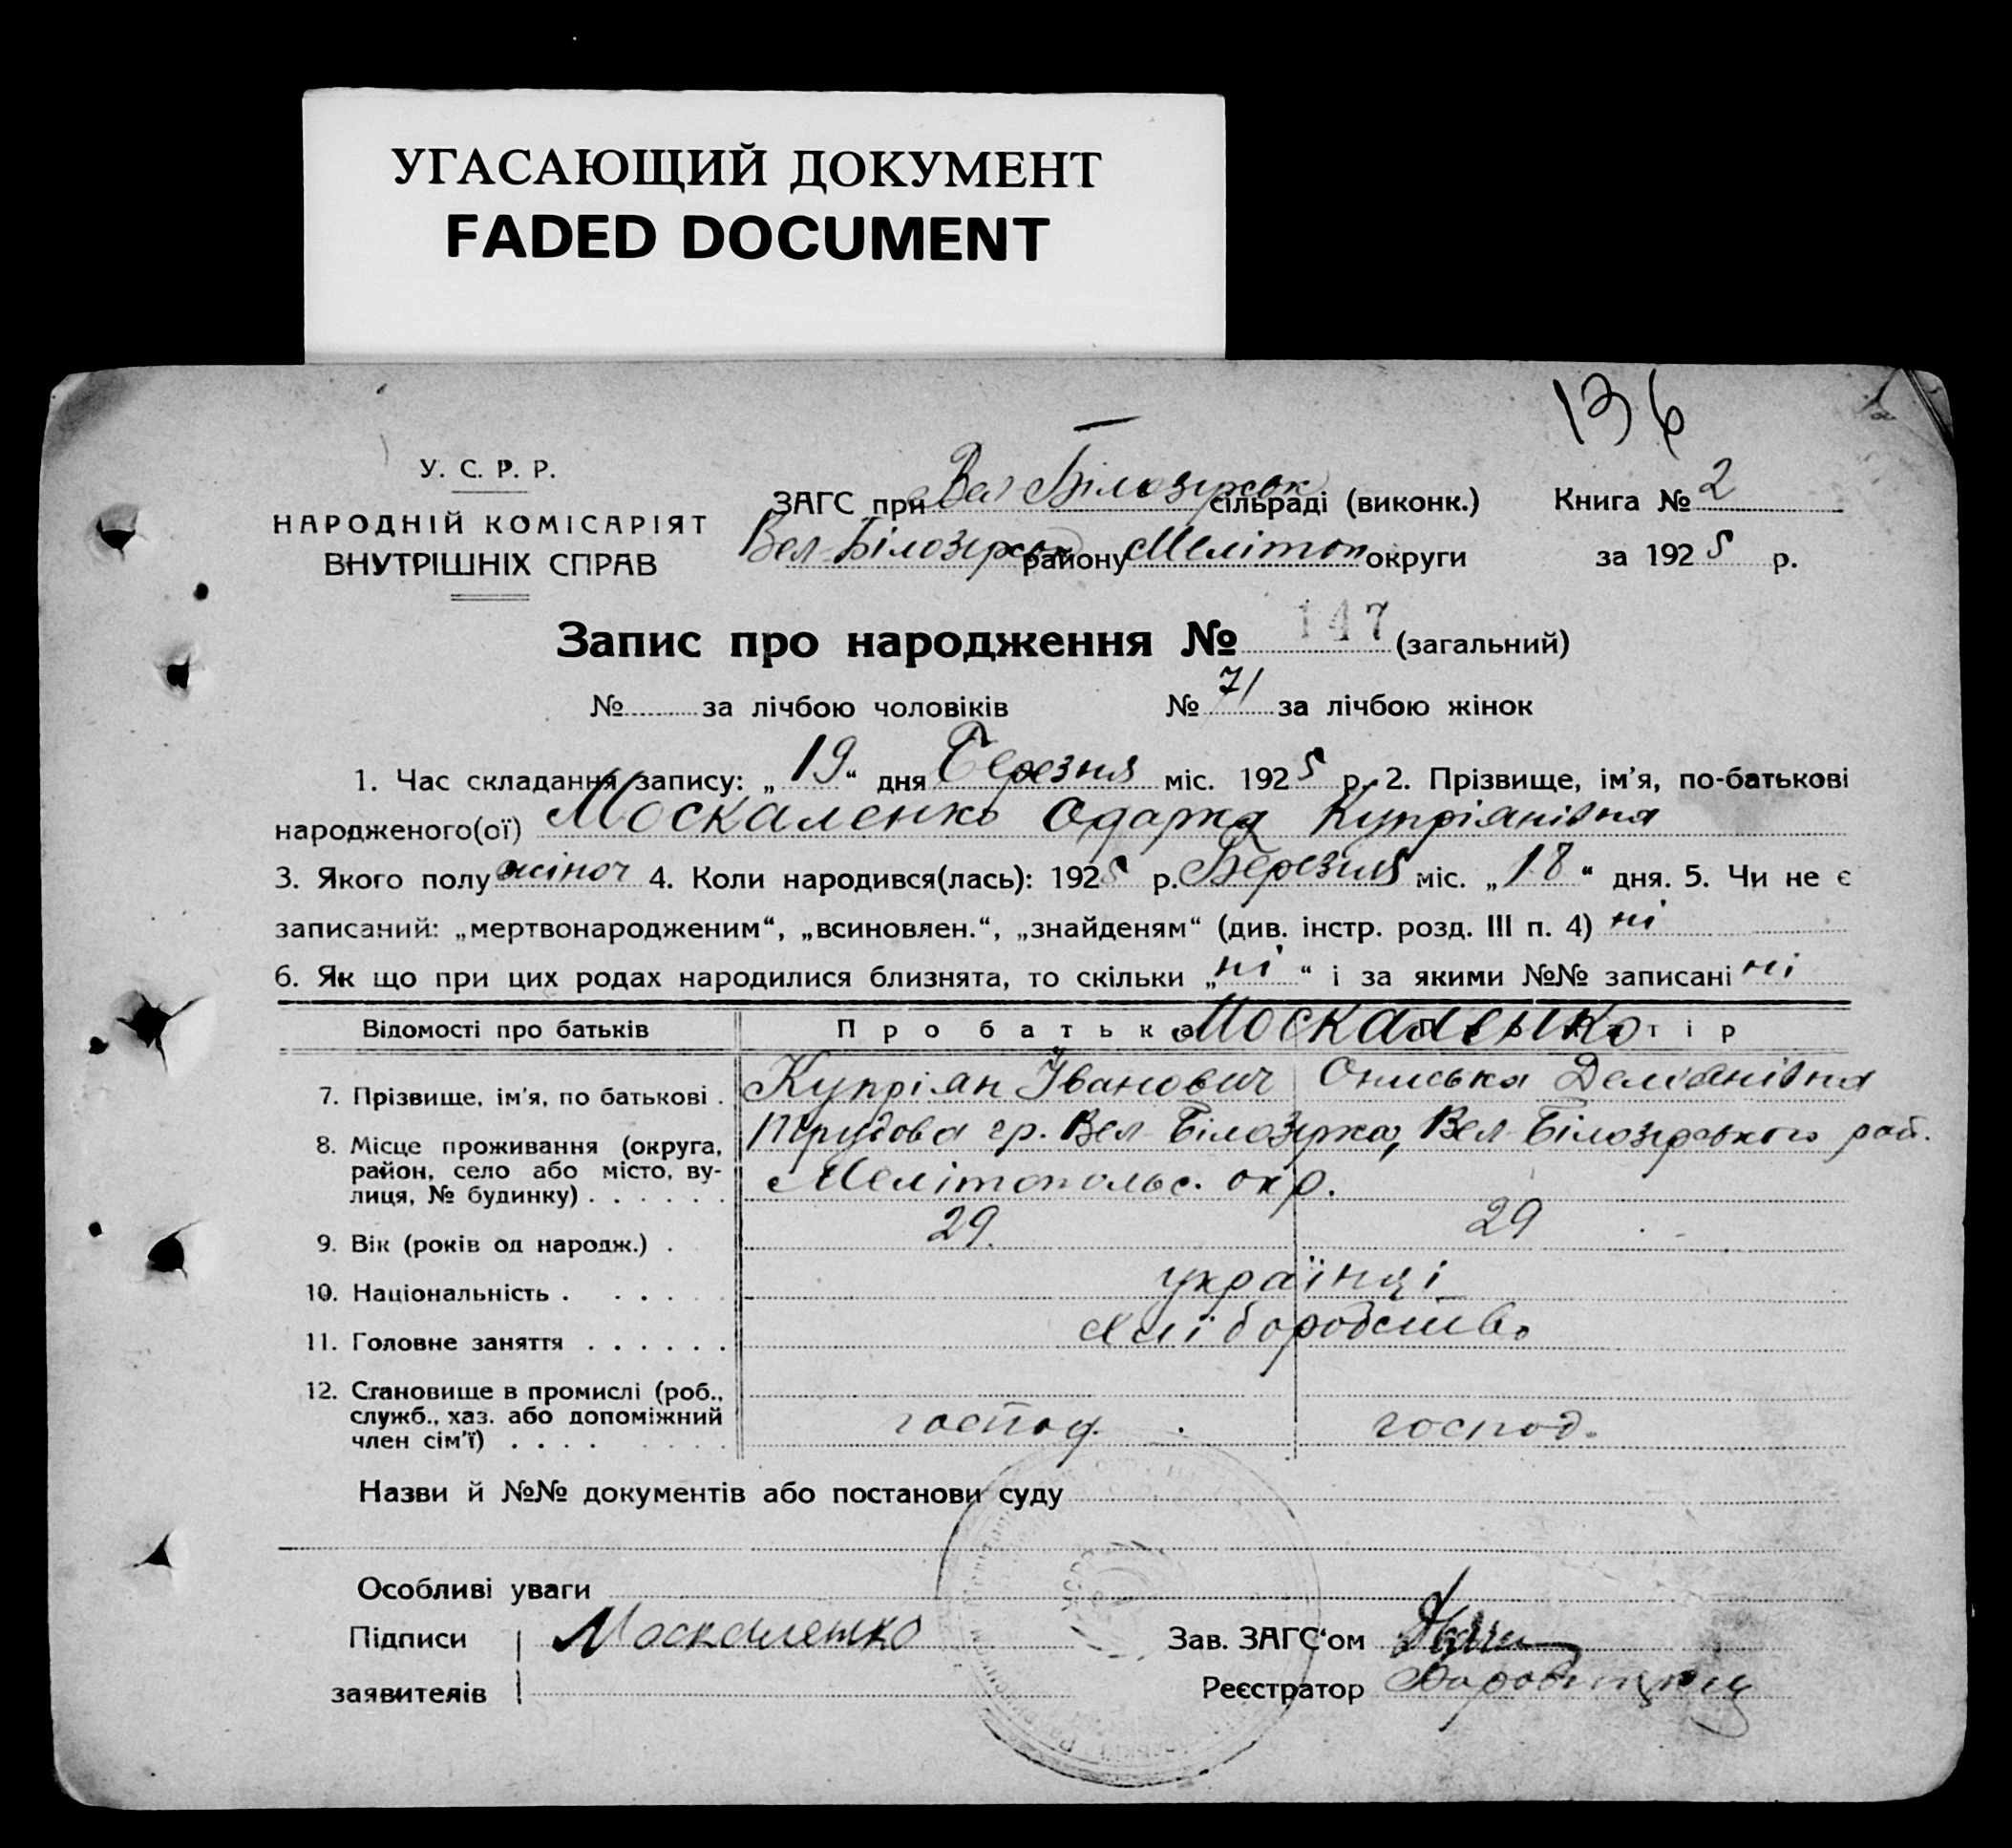 УГАСАЮЩИЙ ДОКУМЕНТ
FADED DOCUMENT
136
У. С. Р. Р.
НАРОДНІЙ КОМІСАРІЯТ
ВНУТРІШНІХ СПРАВ
ЗАГС при Вел Білозирськ сільраді (виконк.)
Вел-Білозерськ району Мелітоп округи
Книга № 2
за 1925 р.
Запис про народження № 147 (загальний)
№ за лічбою чоловіків № 71 за лічбою жінок
1. Час складання запису: „19“ дня Березня міс. 1925 р. 2. Прізвище, ім’я, по-батькові
народженого(ої) Москаленко Одарка Купріянівна
3. Якого полу жіноч 4. Коли народився(лась): 1925 р. Березня міс. „18“ дня. 5. Чи не є
записаний: „мертвонародженим“, „всиновлен.“, „знайденям“ (див. інстр. розд. III п. 4) ні
6. Як що при цих родах народилися близнята, то скільки „ні“ і за якими №№ записані ні
Відомості про батьків Про батька Москаленко
7. Прізвище, ім’я, по батькові . Купріян Іванович Ониська Дем'янівна
8. Місце проживання (округа, район, село або місто, вулиця, № будинку) . . . . . . гр. Вел-Білозирка, Вел-Білозирського рай.
Мелітопольс. окр.
9. Вік (років од народж.) . 29. 29
10. Національність . . . . . . українці
11. Головне заняття . . . . . . хліборобство
12. Становище в промислі (роб., служб., хаз. або допоміжний член сім’ї) . . . . господ. господ.
Назви й №№ документів або постанови суду
Особливі уваги
Підписи Москаленко Зав. ЗАГС‘ом
заявителів Реєстратор